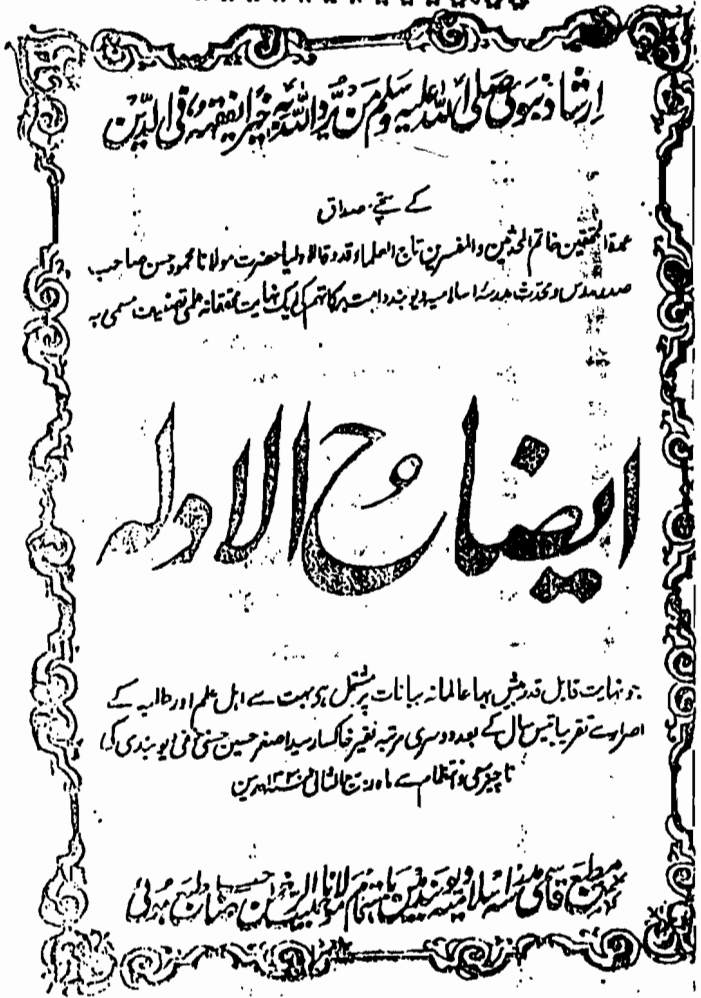 ارشاد نبوی صلی اللہ علیہ وسلم مَنْ یُّرِدِ اللّٰہُ بِہٖ خَیْرًا یُّفَقِّہْہُ فِی الدِّیْن
کے سچے مصداق
عمدۃ المحققین خاتم المحدثین والمفسرین تاج العلماء قدوۃ الاولیا حضرت مولانا محمود حسن صاحب
صدر مدرس و محدث مدرسہ اسلامیہ دیوبند دامت برکاتہم کی ایک نہایت محققانہ علمی تصنیف مسمی بہ
ایضاح الادلہ
جو نہایت قابل قدر بیش بہا عالمانہ بیانات پر مشتمل ہی بہت سے اہل علم اور طالبہ کے
اصرار سے تقریباً تیس سال کے بعد دوسری مرتبہ فقیر خاکسار سید اصغر حسین حسنی حنفی دیوبندی کی
ناچیز سعی و انتظام سے ماہ ربیع الثانی ۱۳۳۰ ہجری میں
مطبع قاسمی مدرسہ اسلامیہ دیوبند میں باہتمام مولانا حبیب الرحمن صاحب طبع ہوئی